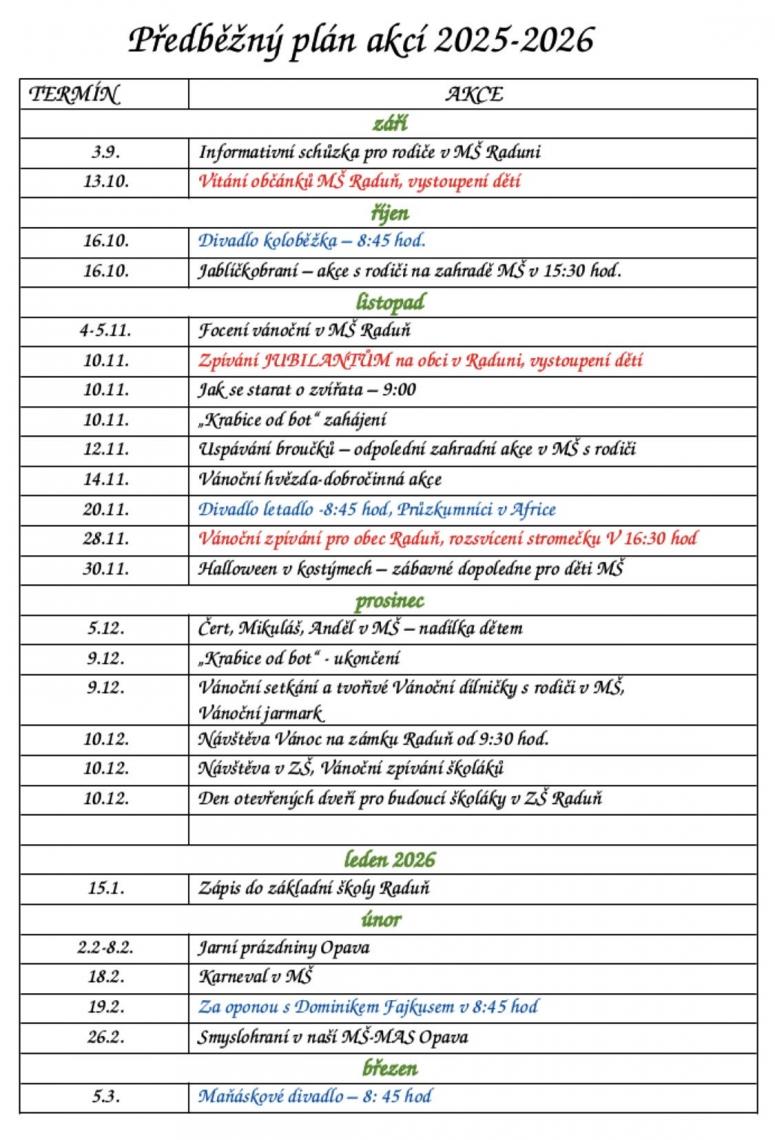 Předběžný plán akcí 2025-2026
TERMÍN AKCE
září
3.9. Informativní schůzka pro rodiče v MŠ Raduni
13.10. Vítání občánků MŠ Raduň, vystoupení dětí
říjen
16.10. Divadlo koloběžka – 8:45 hod.
16.10. Jablíčkobraní – akce s rodiči na zahradě MŠ v 15:30 hod.
listopad
4-5.11. Focení vánoční v MŠ Raduň
10.11. Zpívání JUBILANTŮM na obci v Raduni, vystoupení dětí
10.11. Jak se starat o zvířata – 9:00
10.11. „Krabice od bot“ zahájení
12.11. Uspávání broučků – odpolední zahradní akce v MŠ s rodiči
14.11. Vánoční hvězda-dobročinná akce
20.11. Divadlo letadlo -8:45 hod, Průzkumníci v Africe
28.11. Vánoční zpívání pro obec Raduň, rozsvícení stromečku V 16:30 hod
30.11. Halloween v kostýmech – zábavné dopoledne pro děti MŠ
prosinec
5.12. Čert, Mikuláš, Anděl v MŠ – nadílka dětem
9.12. „Krabice od bot“ - ukončení
9.12. Vánoční setkání a tvořivé Vánoční dílničky s rodiči v MŠ,
Vánoční jarmark
10.12. Návštěva Vánoc na zámku Raduň od 9:30 hod.
10.12. Návštěva v ZŠ, Vánoční zpívání školáků
10.12. Den otevřených dveří pro budoucí školáky v ZŠ Raduň
leden 2026
15.1. Zápis do základní školy Raduň
únor
2.2-8.2. Jarní prázdniny Opava
18.2. Karneval v MŠ
19.2. Za oponou s Dominikem Fajkusem v 8:45 hod
26.2. Smyslohraní v naší MŠ-MAS Opava
březen
5.3. Maňáskové divadlo – 8: 45 hod